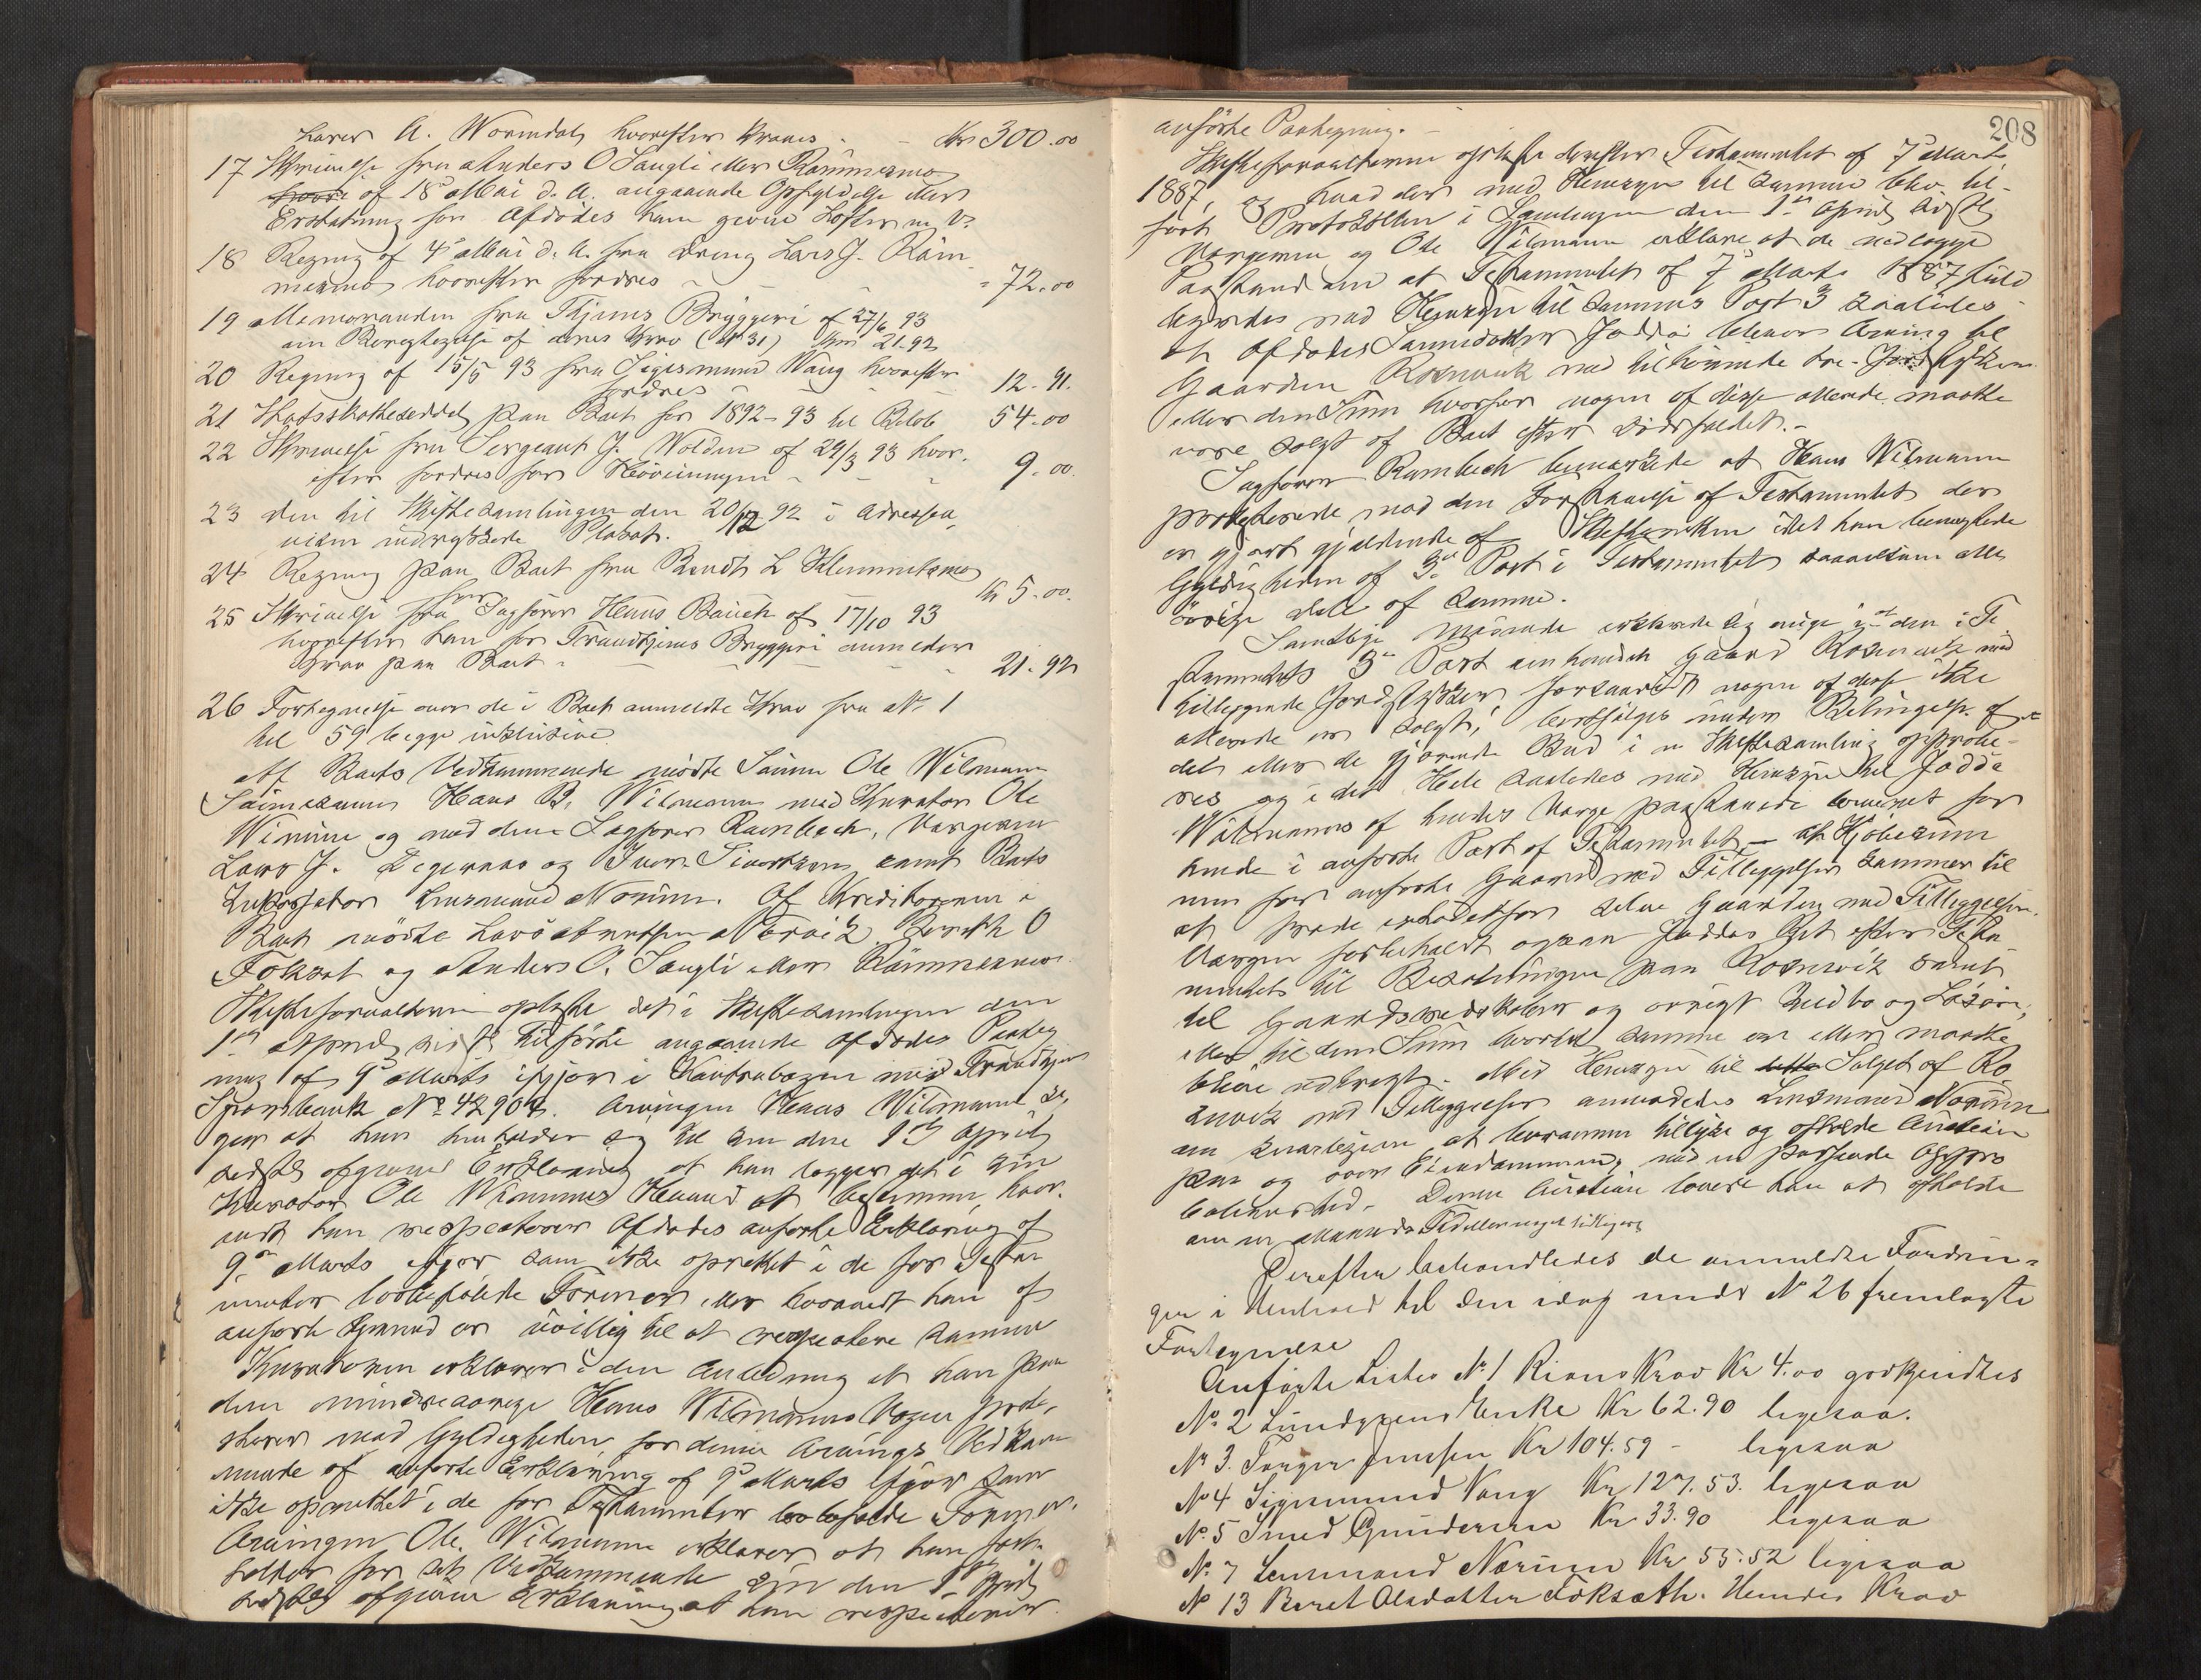 Lærer A. Wormdal hvorefter kræves - Kr 300.00
17 Skrivelse fra Anders O Saugli eller Rämmesmo
af 18de Mai d. A. angaaende Opfyldelse eller
Erstatning for Afdødes ham givne Løfter m. V.
18 Regning af 4de Mai d. A. fra Dreng Lars J. Räm
mesmo hvorefter fordres - 72.00
19 Memorandum fra Thjems Bryggeri af 27/6 93
om Berigtigelse af deres Krav (No 31) Kr 21.92
20 Regning af 15/5 93 fra Sigismund Waug hvorefter
fordres 12.91.
21 Statsskatteseddel paa Boet for 1892-93 til Beløb 54.00
22 Skrivelse fra Sergeant J. Wolden af 29/3 93 hvor-
efter fordres for 9.00.
23 Den til Skiftesamlingen den 20/12 92 i Adressea
visen indrykkede Plakat.
24 Regning paa Boet fra Bendt L Klemmetsmo
Kr 5.00.
25 Skrivelse fra Sagfører Hans Bauck af 17/10 93
hvorefter han for Trondhjems Bryggeri anmelder
Krav paa Boet - 21.92
26 Fortegnelse over de i Boet anmeldte Krav fra No 1
til 59 begge inklusive.
Af Boets Vedkommende mødte Sønnen Ole Wilmann
Sønnesønnen Hans B. Wilmann med Kurator Ole
Winnie og med denne Sagfører Rambech, Vargerne
Lars J. Degernes og Iver Sivertsen samt Boets
Inkassator Lensmand Norum. Af Kreditorerne i
Boet mødte Lars Knutsen Berit O
Foksæt og Anders O. Saugli eller Rämmesmo.
Skifteforvalteren oplæste det i Skiftesamlingen den
1ste April sidstl tilførte angaaende Afdødes Paateg
ning af 9de Marts ifjor i Kontrabogen med Trondhjems
Sparebank No 42904. Arvingen Hans Wilmann si,
ger at han henholder sig til den den 1ste April
sidstl afgivne Erklæring at han lægger det i sin
Kurator Ole Winnies Haand at bestemme, hvor-
vidt han respekterer Afdødes anførte Erklæring af
9de Marts ifjor som ikke oprettet i de for Testa
menter lovbefalede Former eller hvorvidt han af
anførte Grund er uvillig til at respektere samme
Kuratoren erklærer i den Anledning at han paa
den mindreaarige Hans Wilmanns Vegne prote-
sterer mod Gyldigheden for denne Arvings Vedkom
mende af anførte Erklæring af 9de Marts ifjor som
ikke oprettet i de for Testamenter lovbefalede Former.
Arvingen Ole Wilmann erklærer at han fast-
holder for sit Vedkommende sin den 1ste April
sidstl afgivne Erklæring at han respekterer
208
anførte Paategning. -
Skifteforvalteren oplæste derefter Testamentet af 7de Marts
1887, og hvad der med Hensyn til samme blev til-
ført Protokollen i Samlingen den 1ste April sidstl
Vargerne og Ole Wilmann erklære at de nedlægge
Paastand om at Testamentet af 7de Marts 1887 fuld
byrdes med Hensyn til sammes Post 3 saaledes
at Afdødes Sønnedatter Jødda bliver Arving til
Gaarden Rosenvik med tilhørende tre Jordstykker
eller den Sum hvorfor nogen af disse allerede maatte
være solgt af Boet efter Dødsfaldet. -
Sagfører Rambech bemærkede at Hans Wilmann
protesterede mod den Forstaaelse af Testamentet der
er gjort gjældende af Skifteretten idet han benegtede
Gyldigheden af 3die Post i Testamentet saavelsom alle
øvrige dele af samme.
Samtlige Mødende erklærede sig enige i at den i Te
stamentets 3die Post omhandlede Gaard Rosenvik med
tilliggende Jordstykker, forsaavidt nogen af disse ikke
allerede er solgt, bortsælges under Betingelse af at
det eller de gjørende Bud i en Skiftesamling approbe-
res og i det Hele saaledes med Hensyn til Jødda
Wilmanns af hendes Varge paastaaede bemærket for
hende i anførte Post af Testamentet - at Kjøbesum
men for anførte Gaard med Tilliggelser kommer til
at træde istedetfor selve Gaarden med Tilliggelser.
Vargen forbeholdt ogsaa Jøddas Ret efter Testa
mentet til Besætningen paa Rosenvik samt
til Gaardsredskaber og øvrigt Indbo og Løsøre,
eller til den Sum hvortil samme er eller maatte
blive udbragt. Med Hensyn til Salget af Ro
senvik med Tilliggelser anmodedes Lensmand Norum
om snarligen at beramme tillyse og afholde Auktion
paa og over Eiendommene med en passende Appro
bationstid. Denne Auktion lovede han at afholde
om en Maaneds Tid
Derefter behandledes de anmeldte Fordrin-
ger i Henhold til den idag under No 26 fremlagte
Fortegnelse
Anførte Listes No 1 Rians Krav Kr 4.00 godkjendtes
No 2 Lundgreens Enke Kr 62.90 ligesaa.
No 3. Torger Jensen Kr 104.59 - ligesaa
No 4 Sigismund Vaug Kr 127.53. ligesaa
No 5 Smed Gundersen Kr 33.90 ligesaa
No 7 Lensmand Norum Kr 55.52 ligesaa
No 13 Beret Olsdatter Foksæth. Hendes Krav